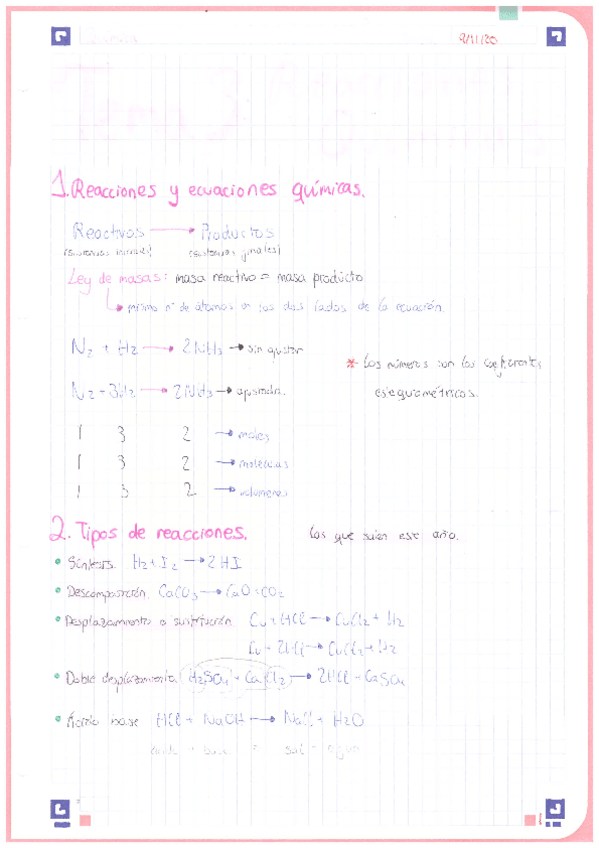 Química
9/11/20
Tema 3: Reacciones
Químicas
1. Reacciones y ecuaciones químicas.
Reactivos → Productos
(sustancias iniciales) (sustancias finales)
Ley de masas: masa reactivo = masa producto
mismo nº de átomos en los dos lados de la ecuación.
N2 + H2 → 2NH3 → sin ajustar
* Los números son los coeficientes
N2 + 3H2 → 2NH3 → ajustada.
estequiométricos.
1 3 2 → moles
1 3 2 → moléculas
1 3 2 → volúmenes
2. Tipos de reacciones. Los que salen este año.
• Síntesis. H2 + I2 → 2HI
• Descomposición. CaCO3 → CaO + CO2
• Desplazamiento o sustitución. Cu + HCl → CuCl2 + H2
Cu + 2HCl → CuCl2 + H2
• Doble desplazamiento. H2SO4 + CaCl2 → 2HCl + CaSO4
• Ácido base HCl + NaOH → NaCl + H2O
ácido + base = sal + agua